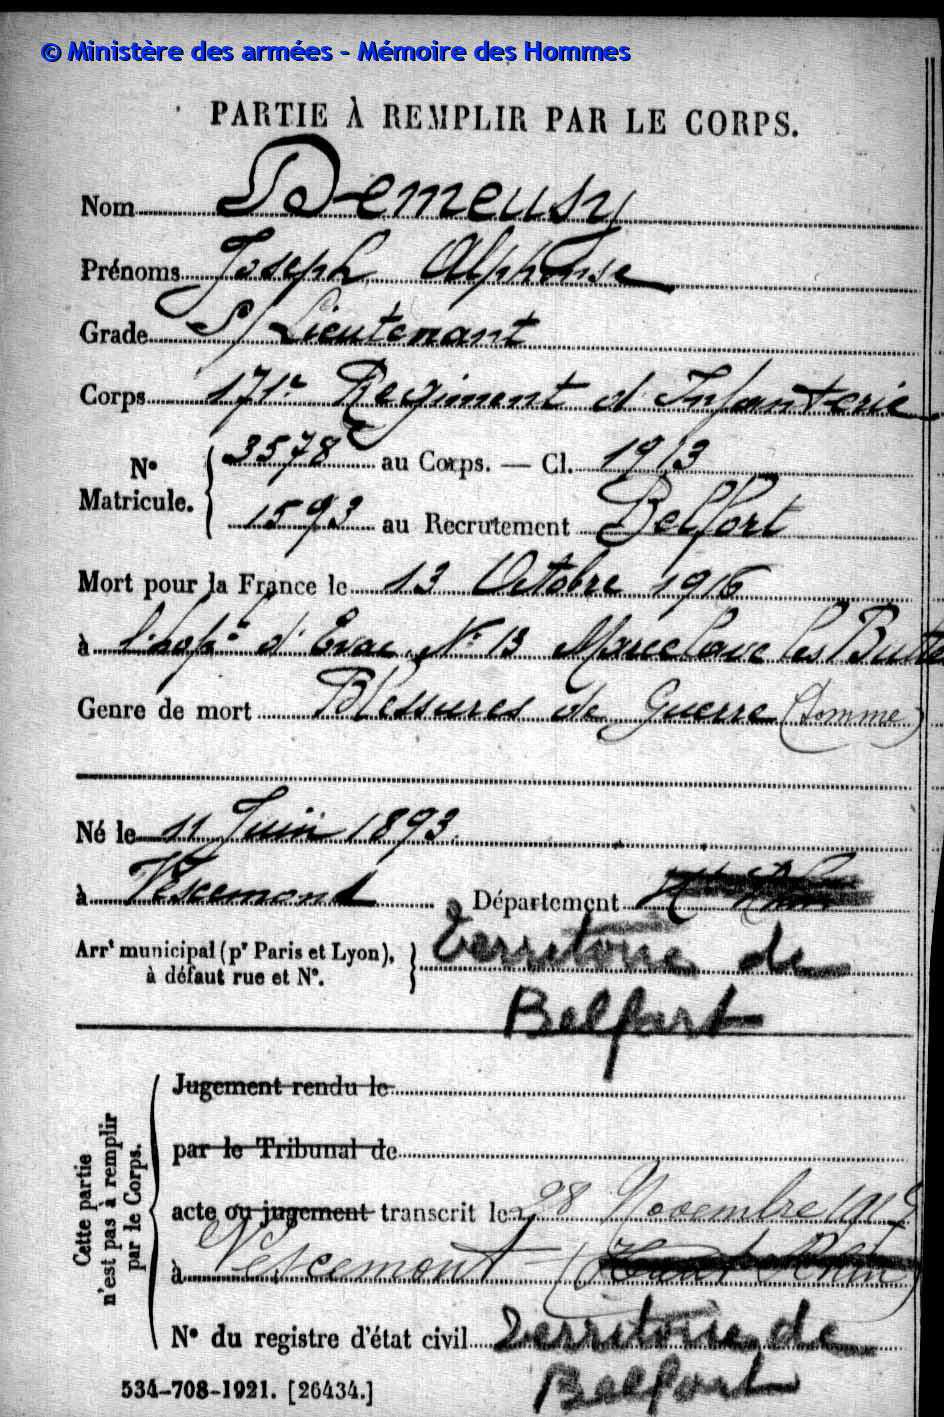 © Ministère des armées - Mémoire des Hommes
PARTIE À REMPLIR PAR LE CORPS.
Nom Demeusy
Prénoms Joseph Alphonse
Grade S/Lieutenant
Corps 171e Regiment d'Infanterie
N° Matricule. 3578 au Corps. — Cl. 1913
1593 au Recrutement Belfort
Mort pour la France le 13 Octobre 1916
à l'hopal d'Evac. N° 13 Marcelcave les Buttes
Genre de mort Blessures de Guerre (Somme)
Né le 11 Juin 1893.
à Vescemond Département
Arrt municipal (pr Paris et Lyon), à défaut rue et N°. Territoire de
Belfort
Cette partie n'est pas à remplir par le Corps.
Jugement rendu le
par le Tribunal de
acte ou jugement transcrit le 28 Novembre
à Vescemont (Haut Rhin)
N° du registre d'état civil Territoire de
Belfort
534-708-1921. [26434.]